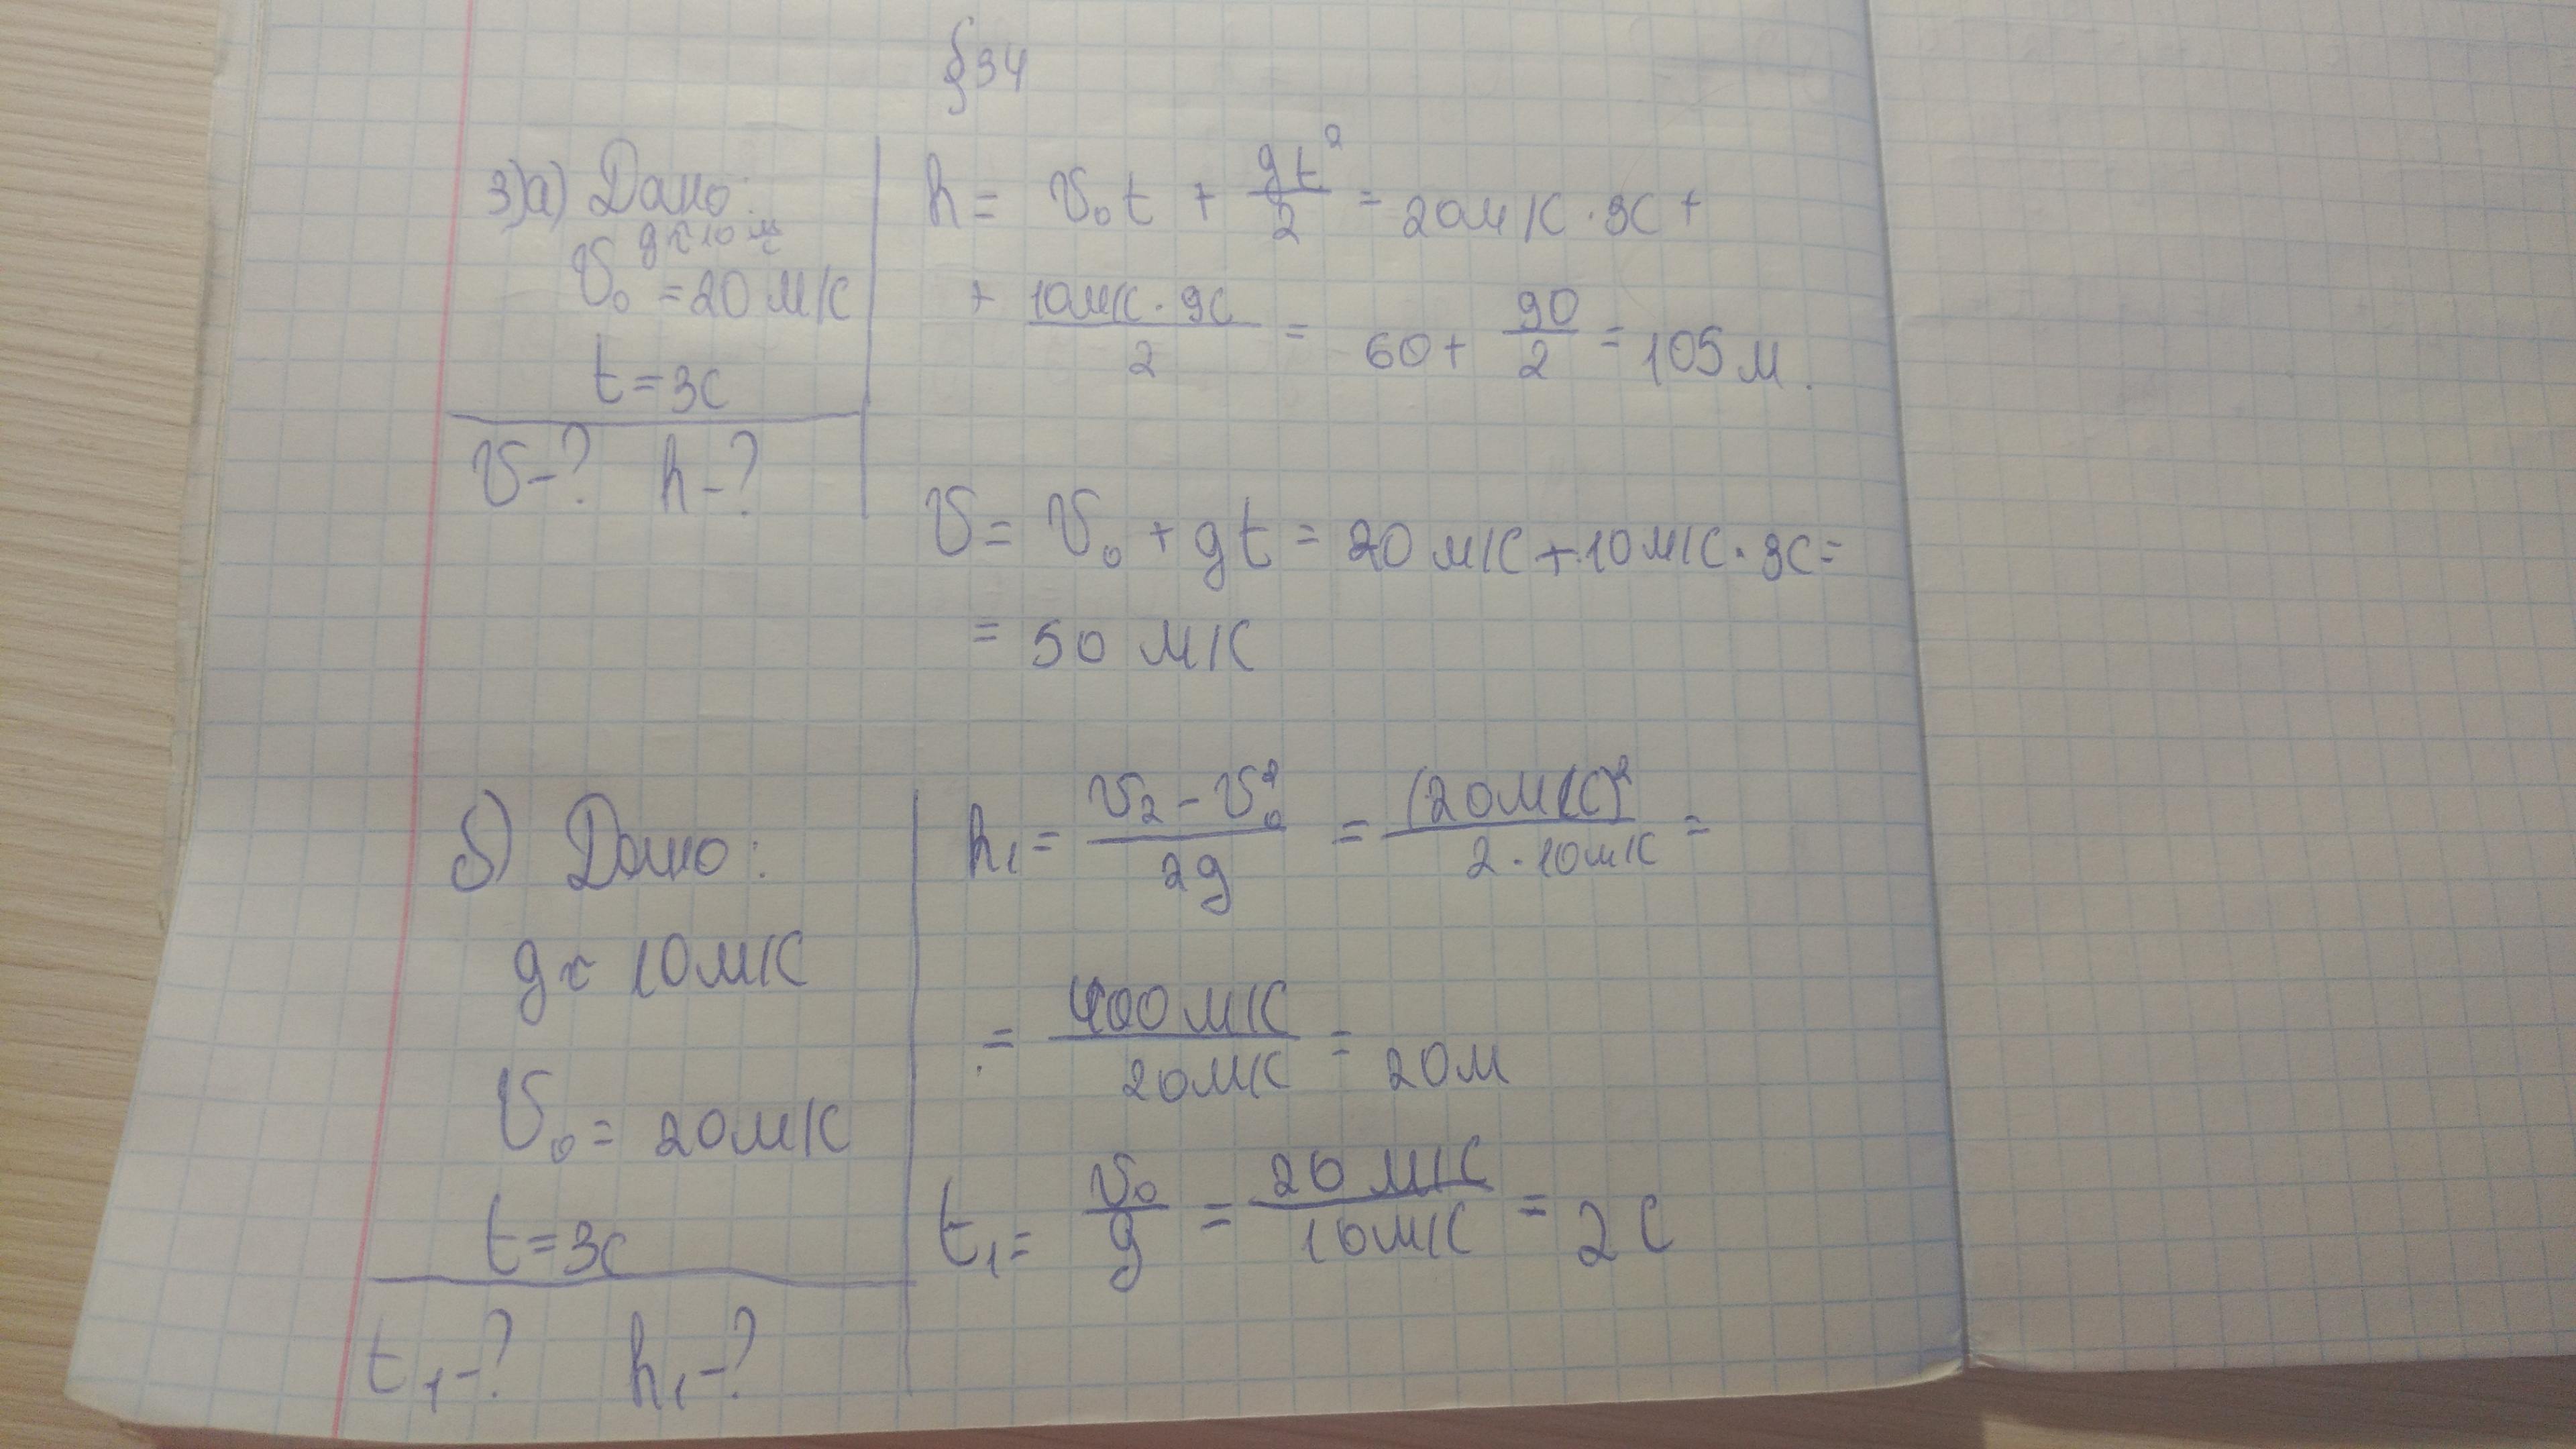 §34
3)а) Дано:
g≈10 м/с
V₀ = 20 м/с
t = 3с
V-? h-?
h = V₀t + gt²/2 = 20м/с · 3с +
+ 10м/с · 9с / 2 = 60 + 90/2 = 105 м.
V = V₀ + gt = 20 м/с + 10м/с · 3с =
= 50 м/с
б) Дано:
g ≈ 10м/с
V₀ = 20м/с
t = 3с
t₁-? h₁-?
h₁ = V₂ - V₀² / 2g = (20м/с)² / 2 · 10м/с =
= 400 м/с / 20м/с = 20м
t₁ = V₀/g = 20 м/с / 10м/с = 2 с